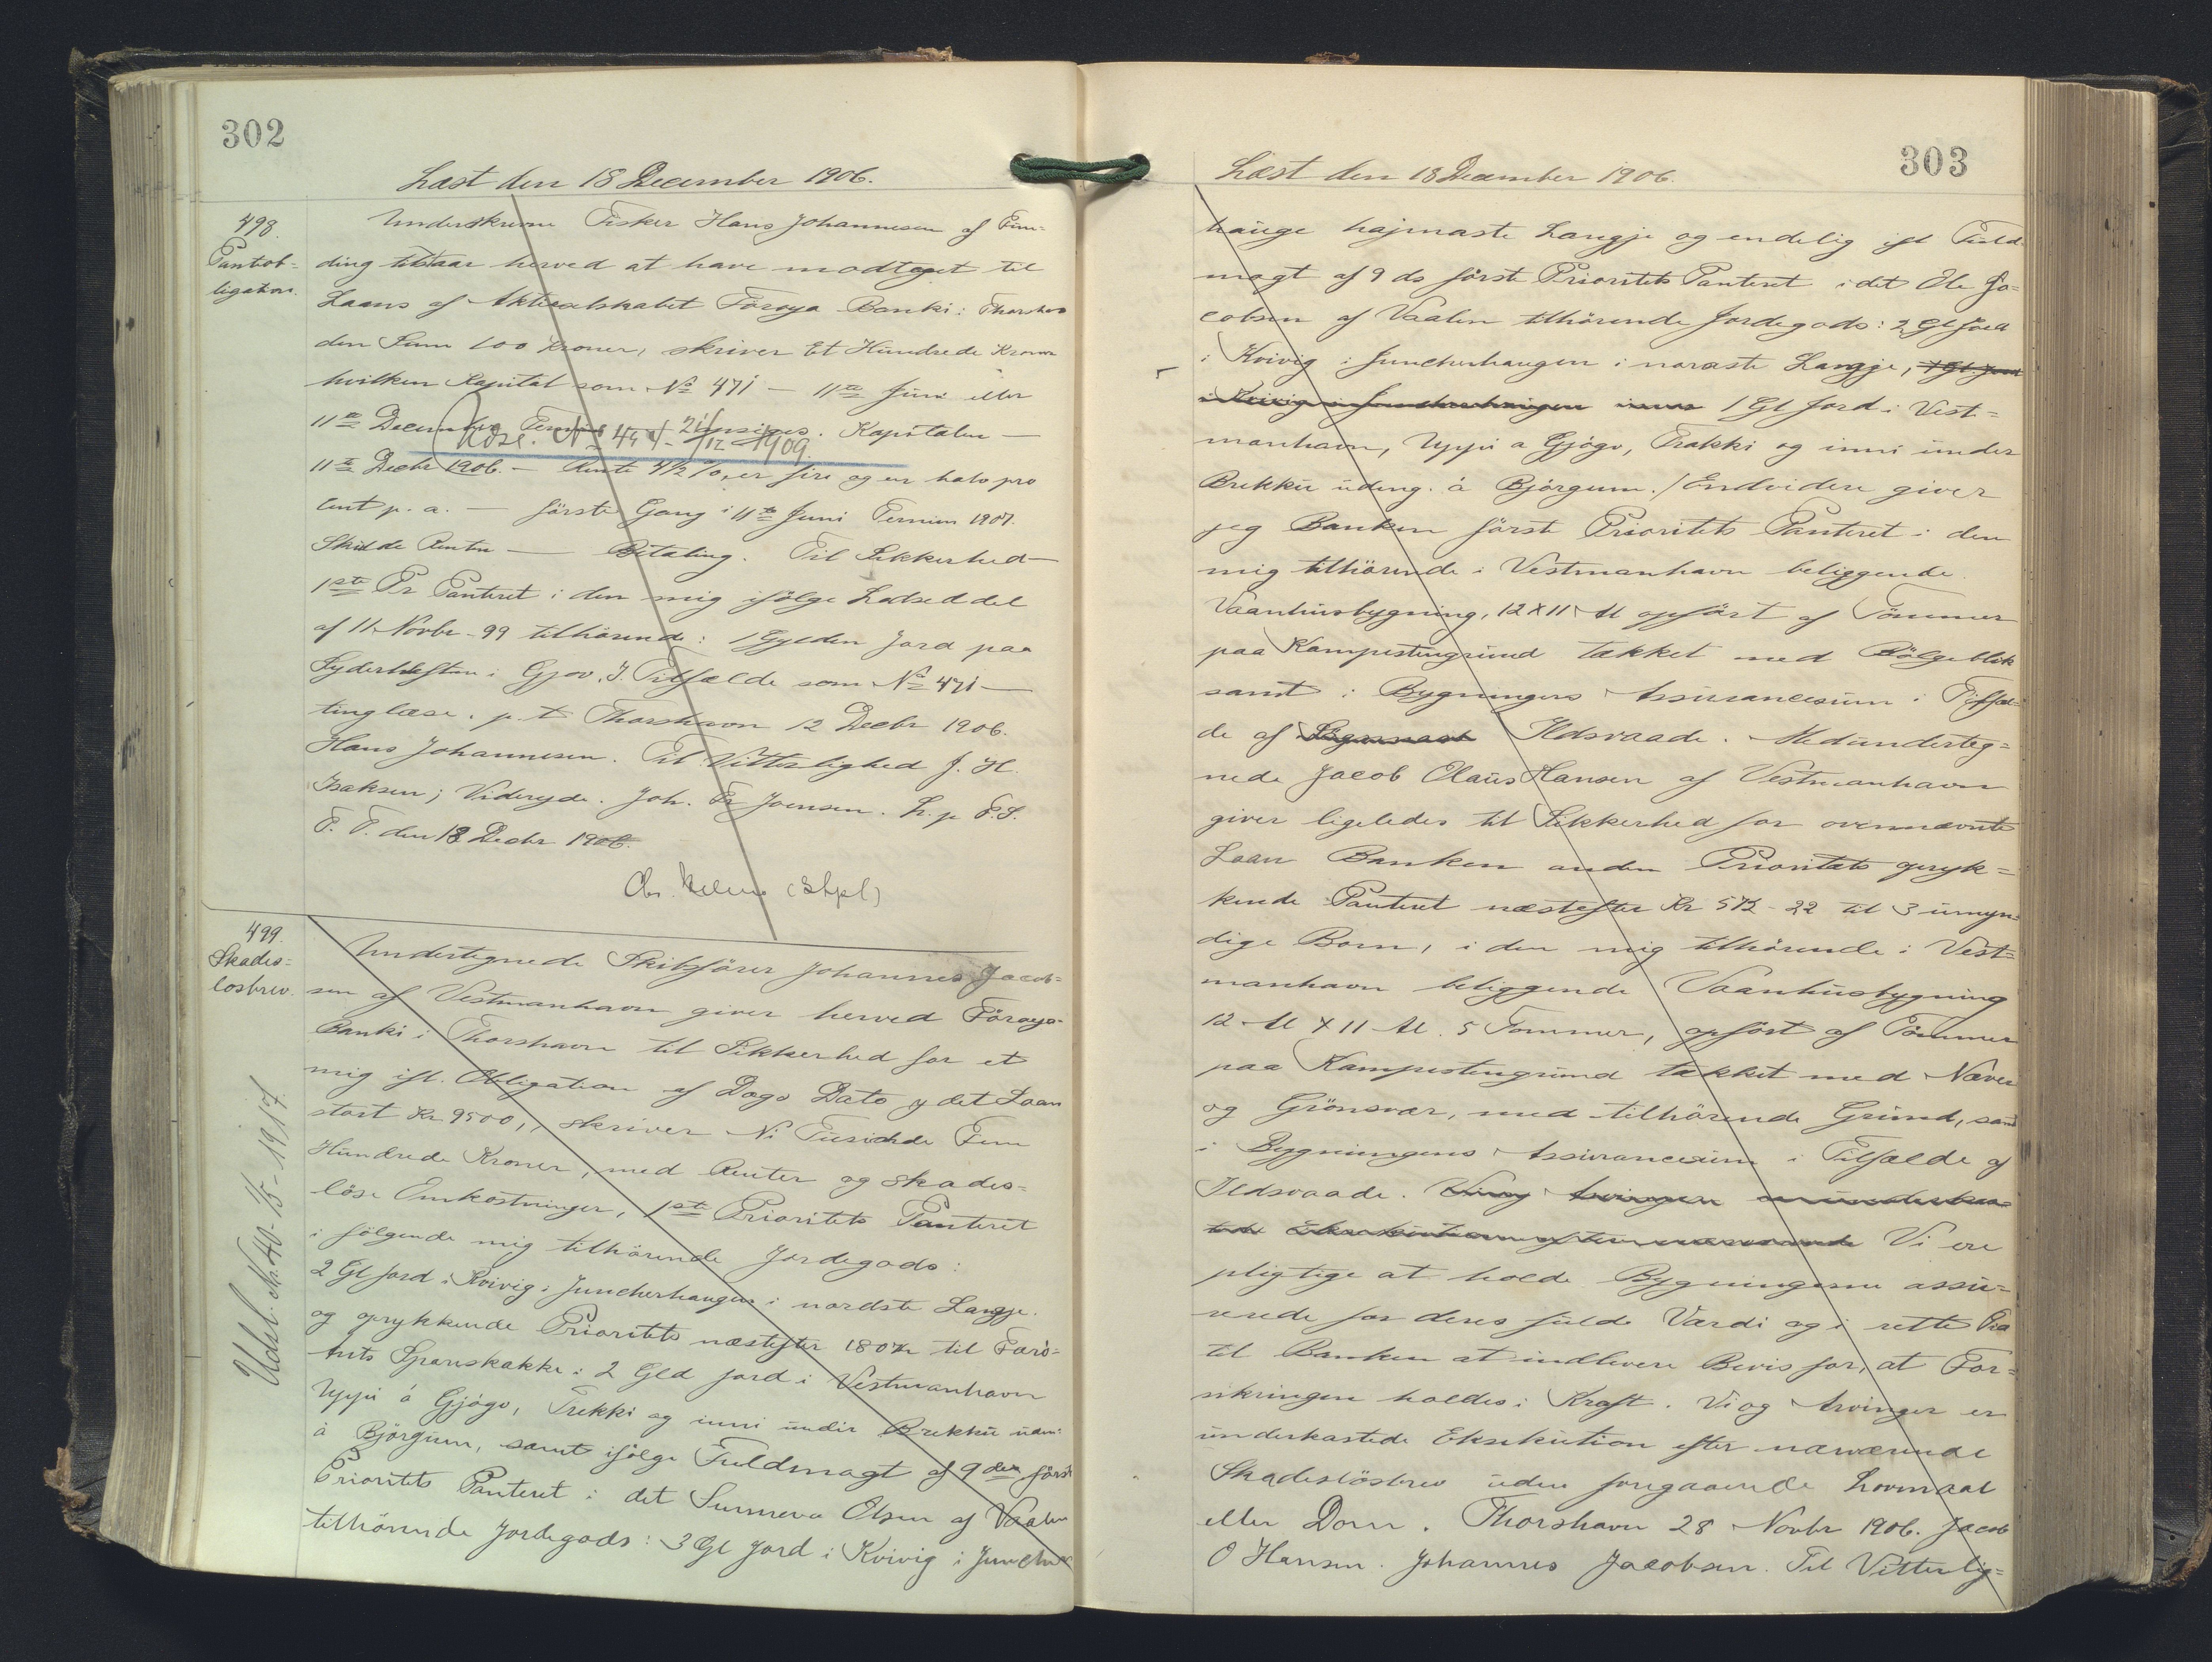 302
Læst den 18 December 1906.
498.
Pantob-
ligation.
Underskrevne Fisker Hans Johannesen af Fun-
ding tilstaar herved at have modtaget til
Laans af Aktieselskabet Föroya Banki i Thorshavn
den Sum 100 Kroner, skriver Et Hundrede Kroner
hvilken Kapital som No 471 — 11te Juni eller
11te December Termin opsiges. Kapitalen —
Udsl. No 444 - 21/12 1909.
11te Decbr 1906. — Rente 4 1/2 %, er fire og en halv pro
cent p. a. — förste Gang i 11te Juni Termin 1907.
Skidde Renter — Betaling. Til Sikkerhed —
1ste Pr Panteret i den mig ifölge Lodseddel
af 11 Novbr - 99 tilhörende: 1 Gylden Jord paa
i Gjov. I Tilfælde som No 471 —
tinglæse. p. t. Thorshavn 12 Decbr 1906.
Hans Johannesen. Til Vitterlighed J. H.
Isaksen; Videreyde. Joh. Fr Joensen. L. p F.S.
T. T. den 18 Decbr 1906.
(Stpl)
499.
Skades-
losbrev.
Udsl. Nr. 40 - 1/5 - 1917.
Undertegnede Skibsförer Johannes Jacob-
sen af Vestmanhavn giver herved Föroya-
Banki i Thorshavn til Sikkerhed for et
mig ifl. Obligation af Dags Dato ydet Laan
stort Kr 9500,, skriver Ni Tusinde Fem
Hundrede Kroner, med Renter og skades-
löse Omkostninger, 1ste Prioritets Panteret
i fölgende mig tilhörende Jordegods:
2 Gl Jord i Kvivig i Juncherhaugen i nordste Langje.
og oprykkende Prioritets næstefter 180 Kr til Færö-
nes Sparekakke i 2 Gld Jord i Vestmanhavn
Uppi á Gjógv, Trekki og inni undir Brekku uden-
á Björgum, samt ifölge Fuldmagt af 9 ds först
Prioritets Panteret i det Sunneva Olsen af Vaalen
tilhörende Jordegods: 3 Gl Jord i Kvivig i Juncher
303
Læst den 18 December 1906.
hauge hajmaste Langje og endelig ifl Fuld
magt af 9 ds förste Prioritets Panteret i det Ole Ja-
cobsen af Vaalen tilhörende Jordegods: 2 Gl Jord
i Kvivig i Juncherhaugen i noraste Langje, 1 Gl. Jord
i Kvivig i Juncherhaugen 1 Gl Jord i Vest-
manhavn, Uppi a Gjógv, Trakki og inni under
Brekku udeng. á Björgum. / Endvidere giver
jeg Banken förste Prioritets Panteret i den
mig tilhörende i Vestmanhavn beliggende
Vaanhusbygning, 12 X 11 Al opfört af Tömmer
paa Kampestengrund takket med Bölgeblik
samt i Bygningens Assurancesum i Tilfæl-
de af Ildsvaade. Medunderteg-
nede Jacob Olaus Hansen af Vestmanhavn
giver ligeledes til Sikkerhed for ovennævnte
Laan Banken anden Prioritets opryk-
kende Panteret næstefter Kr 572 - 22 til 3 umyn-
dige Born, i den mig tilhörende i Vest-
manhavn beliggende Vaanhusbygning
12 Al X 11 Al. 5 Tommer, opfört af Tömmer
paa Kampestengrund takket med Næver
og Grönsvær, med tilhörende Grund, samt
i Bygningens Assurancesum i Tilfælde af
Ildsvaade. Vi og Arvinger
Vi ere
pligtige at holde Bygningerne assu-
rerede for deres fulde Værdi og i rette Tid
til Banken at indlevere Bevis for, at For-
sikringen holdes i Kraft. Vi og Arvinger er
underkastede Eksekution efter nærværende
Skadeslösbrev uden foregaaende Lovmaal
eller Dom. Thorshavn 28 Novbr 1906. Jacob
O Hansen. Johannes Jacobsen. Til Vitterlig-